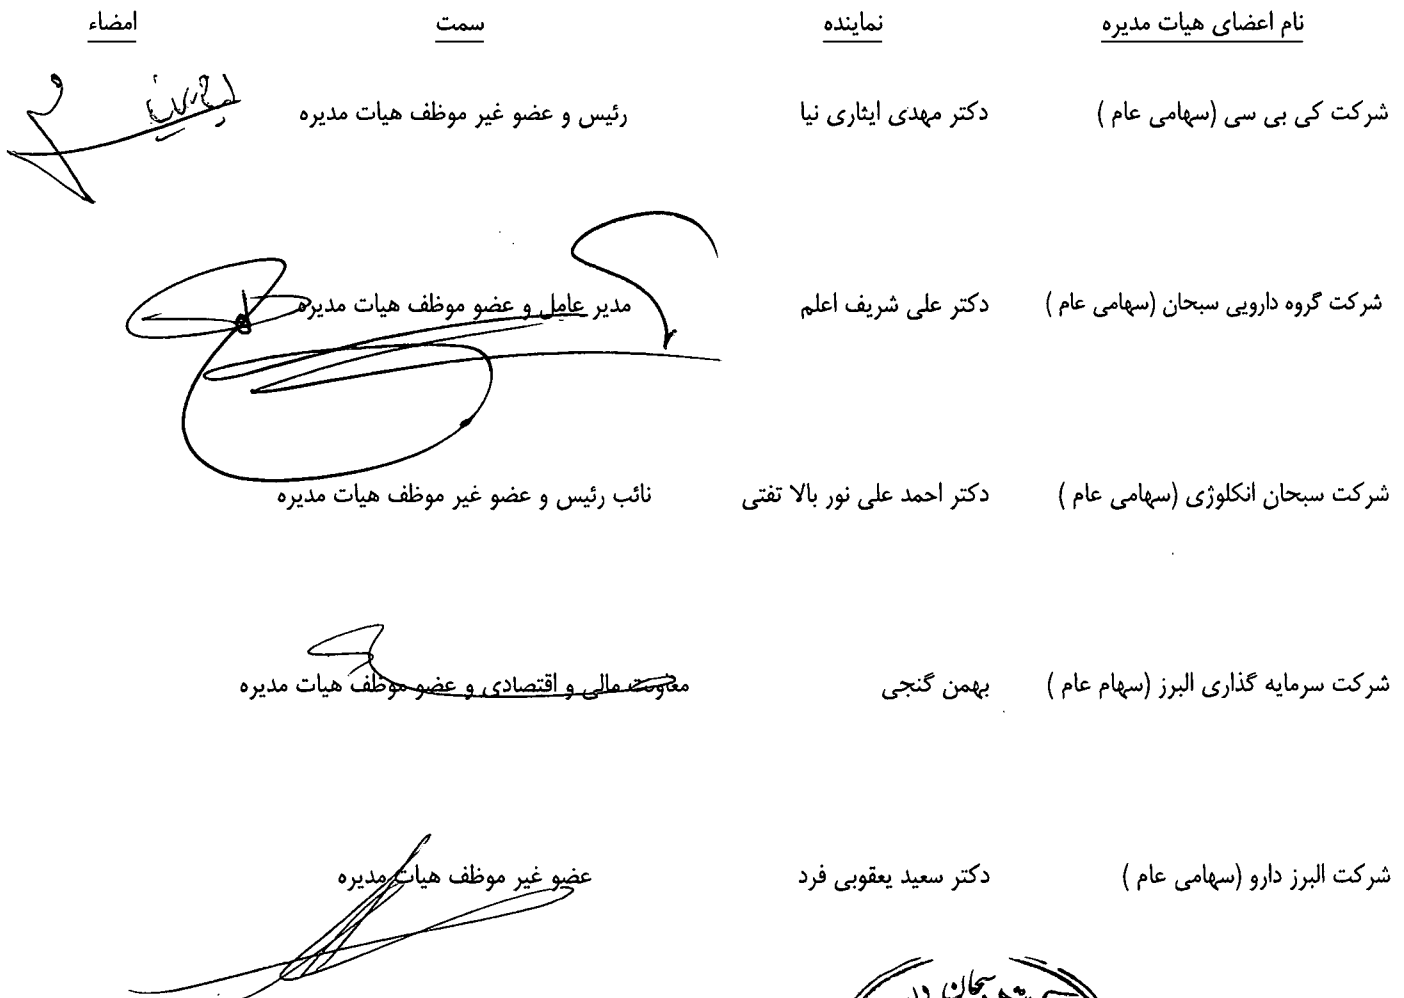 نام اعضای هیات مدیره نماینده سمت امضاء
شرکت کی بی سی (سهامی عام ) دکتر مهدی ایثاری نیا رئیس و عضو غیر موظف هیات مدیره
شرکت گروه دارویی سبحان (سهامی عام ) دکتر علی شریف اعلم مدیر عامل و عضو موظف هیات مدیره
شرکت سبحان انکلوژی (سهامی عام ) دکتر احمد علی نور بالا تفتی نائب رئیس و عضو غیر موظف هیات مدیره
شرکت سرمایه گذاری البرز (سهام عام ) بهمن گنجی معاونت مالی و اقتصادی و عضو موظف هیات مدیره
شرکت البرز دارو (سهامی عام ) دکتر سعید یعقوبی فرد عضو غیر موظف هیات مدیره
سبحان